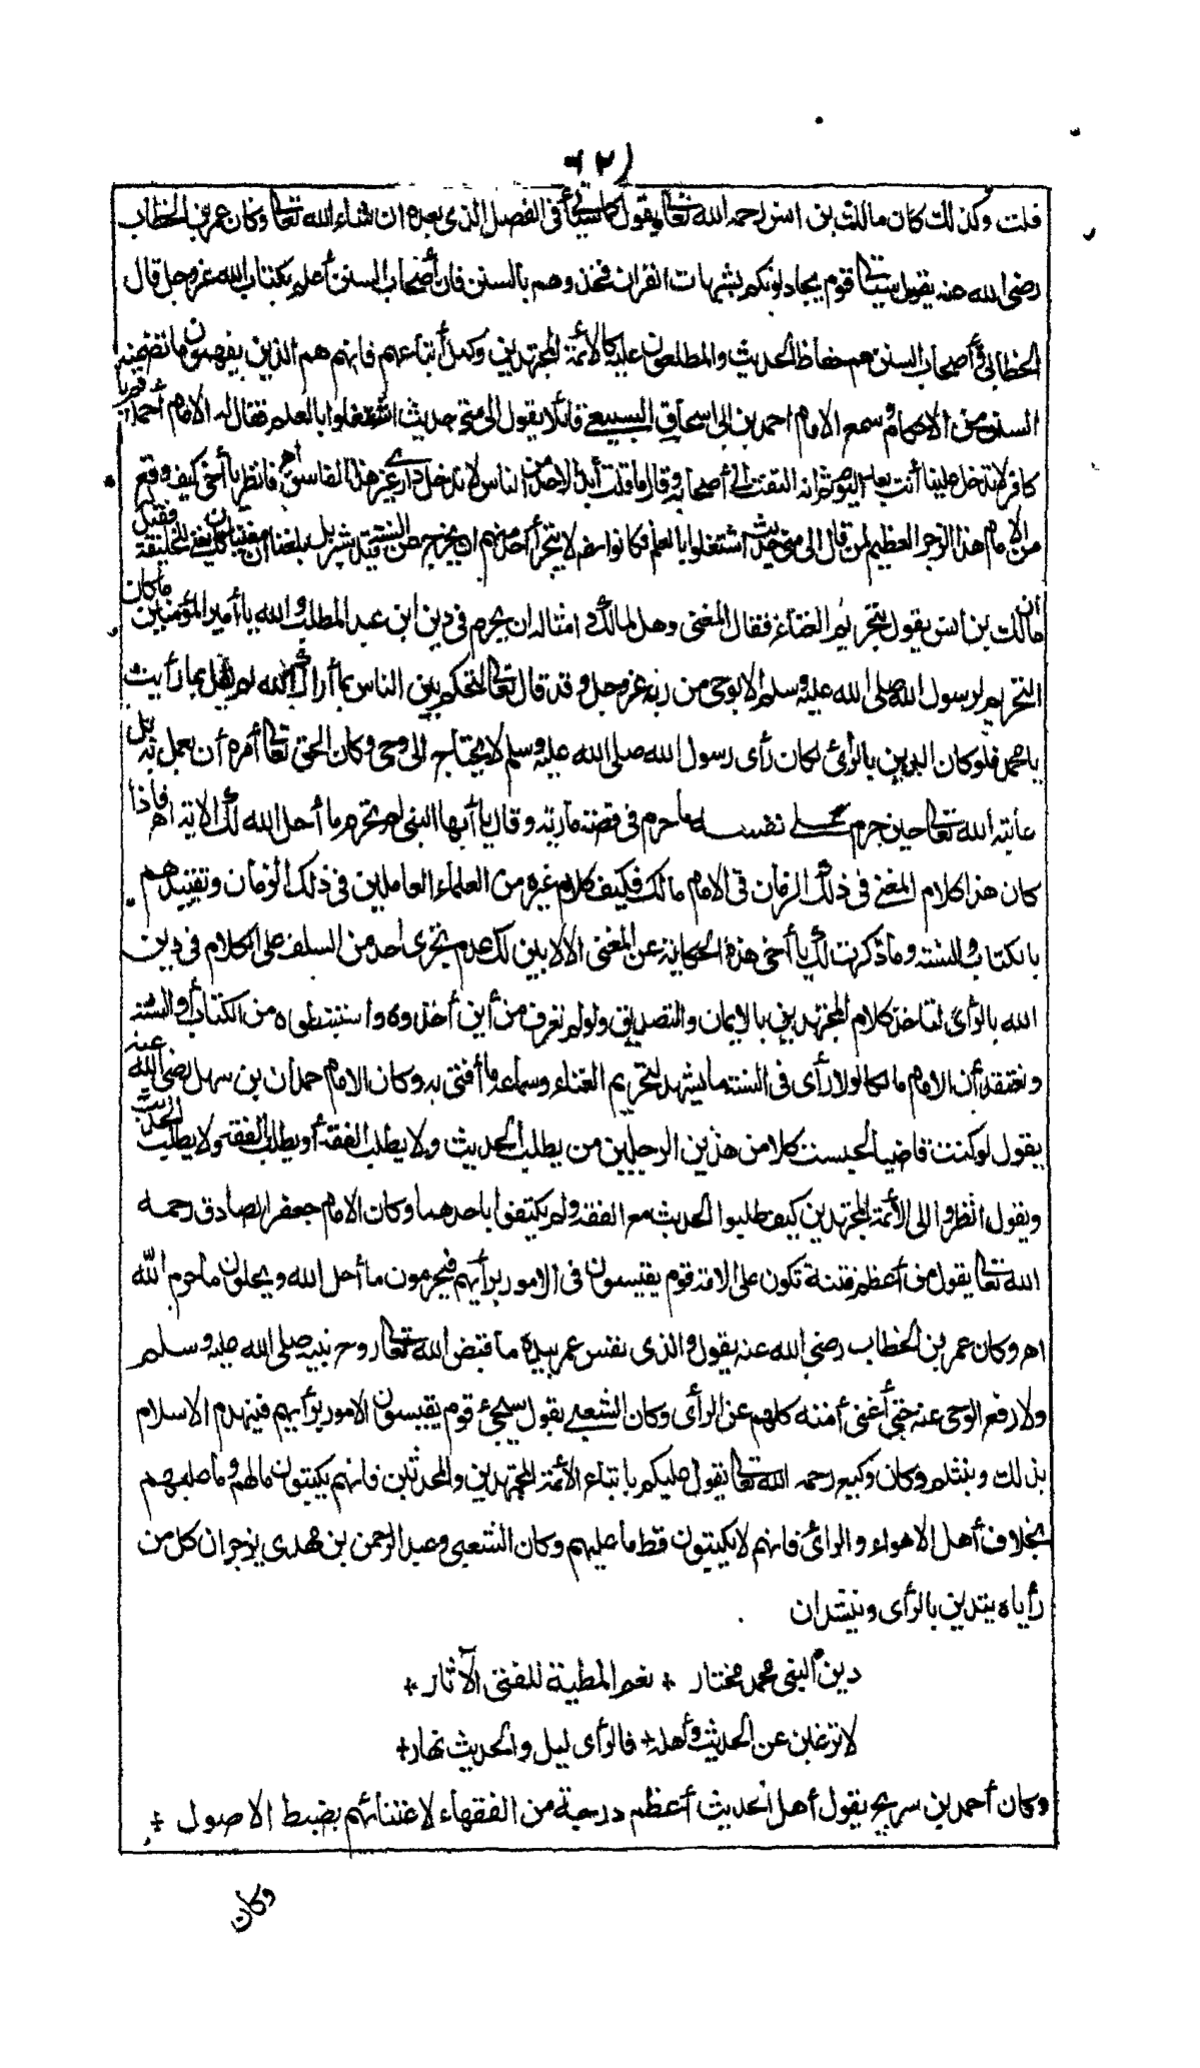 ٦٢
قلت وكذلك كان مالك بن انس رحمه الله تعالى يقول كما سيأتى فى الفصل الذى بعده ان شاء الله تعالى وكان عمر بن الخطاب
رضى الله عنه يقول سيأتى قوم يجادلونكم بشبهات القران فخذوهم بالسنن فان أصحاب السنن أعلم بكتاب الله عز وجل قال
الخطابى وأصحاب السنن هم حفاظ الحديث والمطلعون عليه كالأئمة المجتهدين وكمل أتباعهم فانهم هم الذين يفهمون ما تضمنته
السنن من الاحكام وسمع الامام احمد بن ابى اسحاق السبيعى قائلا يقول الى متى حديث اشتغلوا بالعلم فقال له الامام أحمد قم يا
كافر لا تدخل علينا أنت بعد اليوم ثم انه التفت الى أصحابه وقال ما قلت أبدا لاحد من الناس لا تدخل دارى غير هذا الفاسق اهـ فانظر يا أخى كيف وقع
من الامام هذا الزجر العظيم لمن قال الى متى حديث اشتغلوا بالعلم فكانوا رضى لا يتجرأ أحد منهم ان يخرج عن السنة قيد شبر بل بلغنا ان مغنيا كان يغنى للخليفة فقيل
ان مالك بن انس يقول بتحريم الغناء فقال المغنى وهل لمالك وامثاله ان يحرم فى دين ابن عبد المطلب والله يا أمير المؤمنين ما كان
التحريم لرسول الله صلى الله عليه وسلم الا بوحى من ربه عز وجل وقد قال تعالى لتحكم بين الناس بما أراك الله لم يقل بما رأيت
يا محمد فلو كان الدين بالرأى لكان رأى رسول الله صلى الله عليه وسلم لا يحتاج الى وحى وكان الحق تعالى أمره أن يعمل به بل
عاتبه الله تعالى حين حرم على نفسه ما حرم فى قصة مارية وقال يا أيها النبى لم تحرم ما أحل الله لك الاية اهـ فاذا
كان هذا كلام المغنى فى ذلك الزمان فى الامام مالك فكيف كلام غيره من العلماء العاملين فى ذلك الزمان وتقييدهم
بالكتاب والسنة وما ذكرت لك يا أخى هذه الحكاية عن المغنى الا لابين لك عدم تجرى احد من السلف على الكلام فى دين
الله بالرأى لتاخذ كلام المجتهدين بالايمان والتصديق ولو لم تعرف من أين أخذوه واستنبطوه من الكتاب والسنة
وتعتقد أن الامام مالكا لولا رأى فى السنة ما يشهد لتحريم الغناء وسماعه ما أفتى به وكان الامام حمدان بن سهل رضى الله عنه
يقول لو كنت قاضيا لحبست كلا من هذين الرجلين من يطلب الحديث ولا يطلب الفقه أو يطلب الفقه ولا يطلب الحديث
ويقول انظروا الى الأئمة المجتهدين كيف طلبوا الحديث مع الفقه ولم يكتفوا باحدهما وكان الامام جعفر الصادق رحمه
الله تعالى يقول من أعظم فتنة تكون على الامة قوم يقيسون فى الامور برأيهم فيحرمون ما أحل الله ويحلون ما حرم الله
اهـ وكان عمر بن الخطاب رضى الله عنه يقول والذى نفس عمر بيده ما قبض الله تعالى روح نبيه صلى الله عليه وسلم
ولا رفع الوحى عنه حتى أغنى أمته كلهم عن الرأى وكان الشعبى يقول سيجئ قوم يقيسون الامور برأيهم فينهدم الاسلام
بذلك وينثلم وكان وكيع رحمه الله تعالى يقول عليكم باتباع الأئمة المجتهدين والمحدثين فانهم يكتبون مالهم وما عليهم
بخلاف أهل الاهواء والرأى فانهم لا يكتبون قط ما عليهم وكان الشعبى وعبد الرحمن بن مهدى يزجران كل من
رأياه يتدين بالرأى وينشدان
دين النبى محمد مختار + نعم المطية للفتى الآثار +
لا ترغبن عن الحديث وأهله + فالرأى ليل والحديث نهار +
وكان أحمد بن سريج يقول أهل الحديث أعظم درجة من الفقهاء لاعتنائهم بضبط الاصول +
وكان